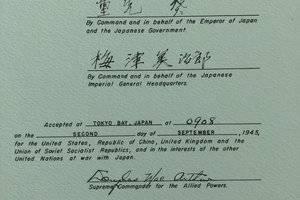 重光葵
By Command and in behalf of the Emperor of Japan
and the Japanese Government.
梅津美治郎
By Command and in behalf of the Japanese
Imperial General Headquarters.
Accepted at TOKYO BAY, JAPAN at 0908
on the SECOND day of SEPTEMBER, 1945,
for the United States, Republic of China, United Kingdom and the
Union of Soviet Socialist Republics, and in the interests of the other
United Nations at war with Japan.
Douglas MacArthur
Supreme Commander for the Allied Powers.